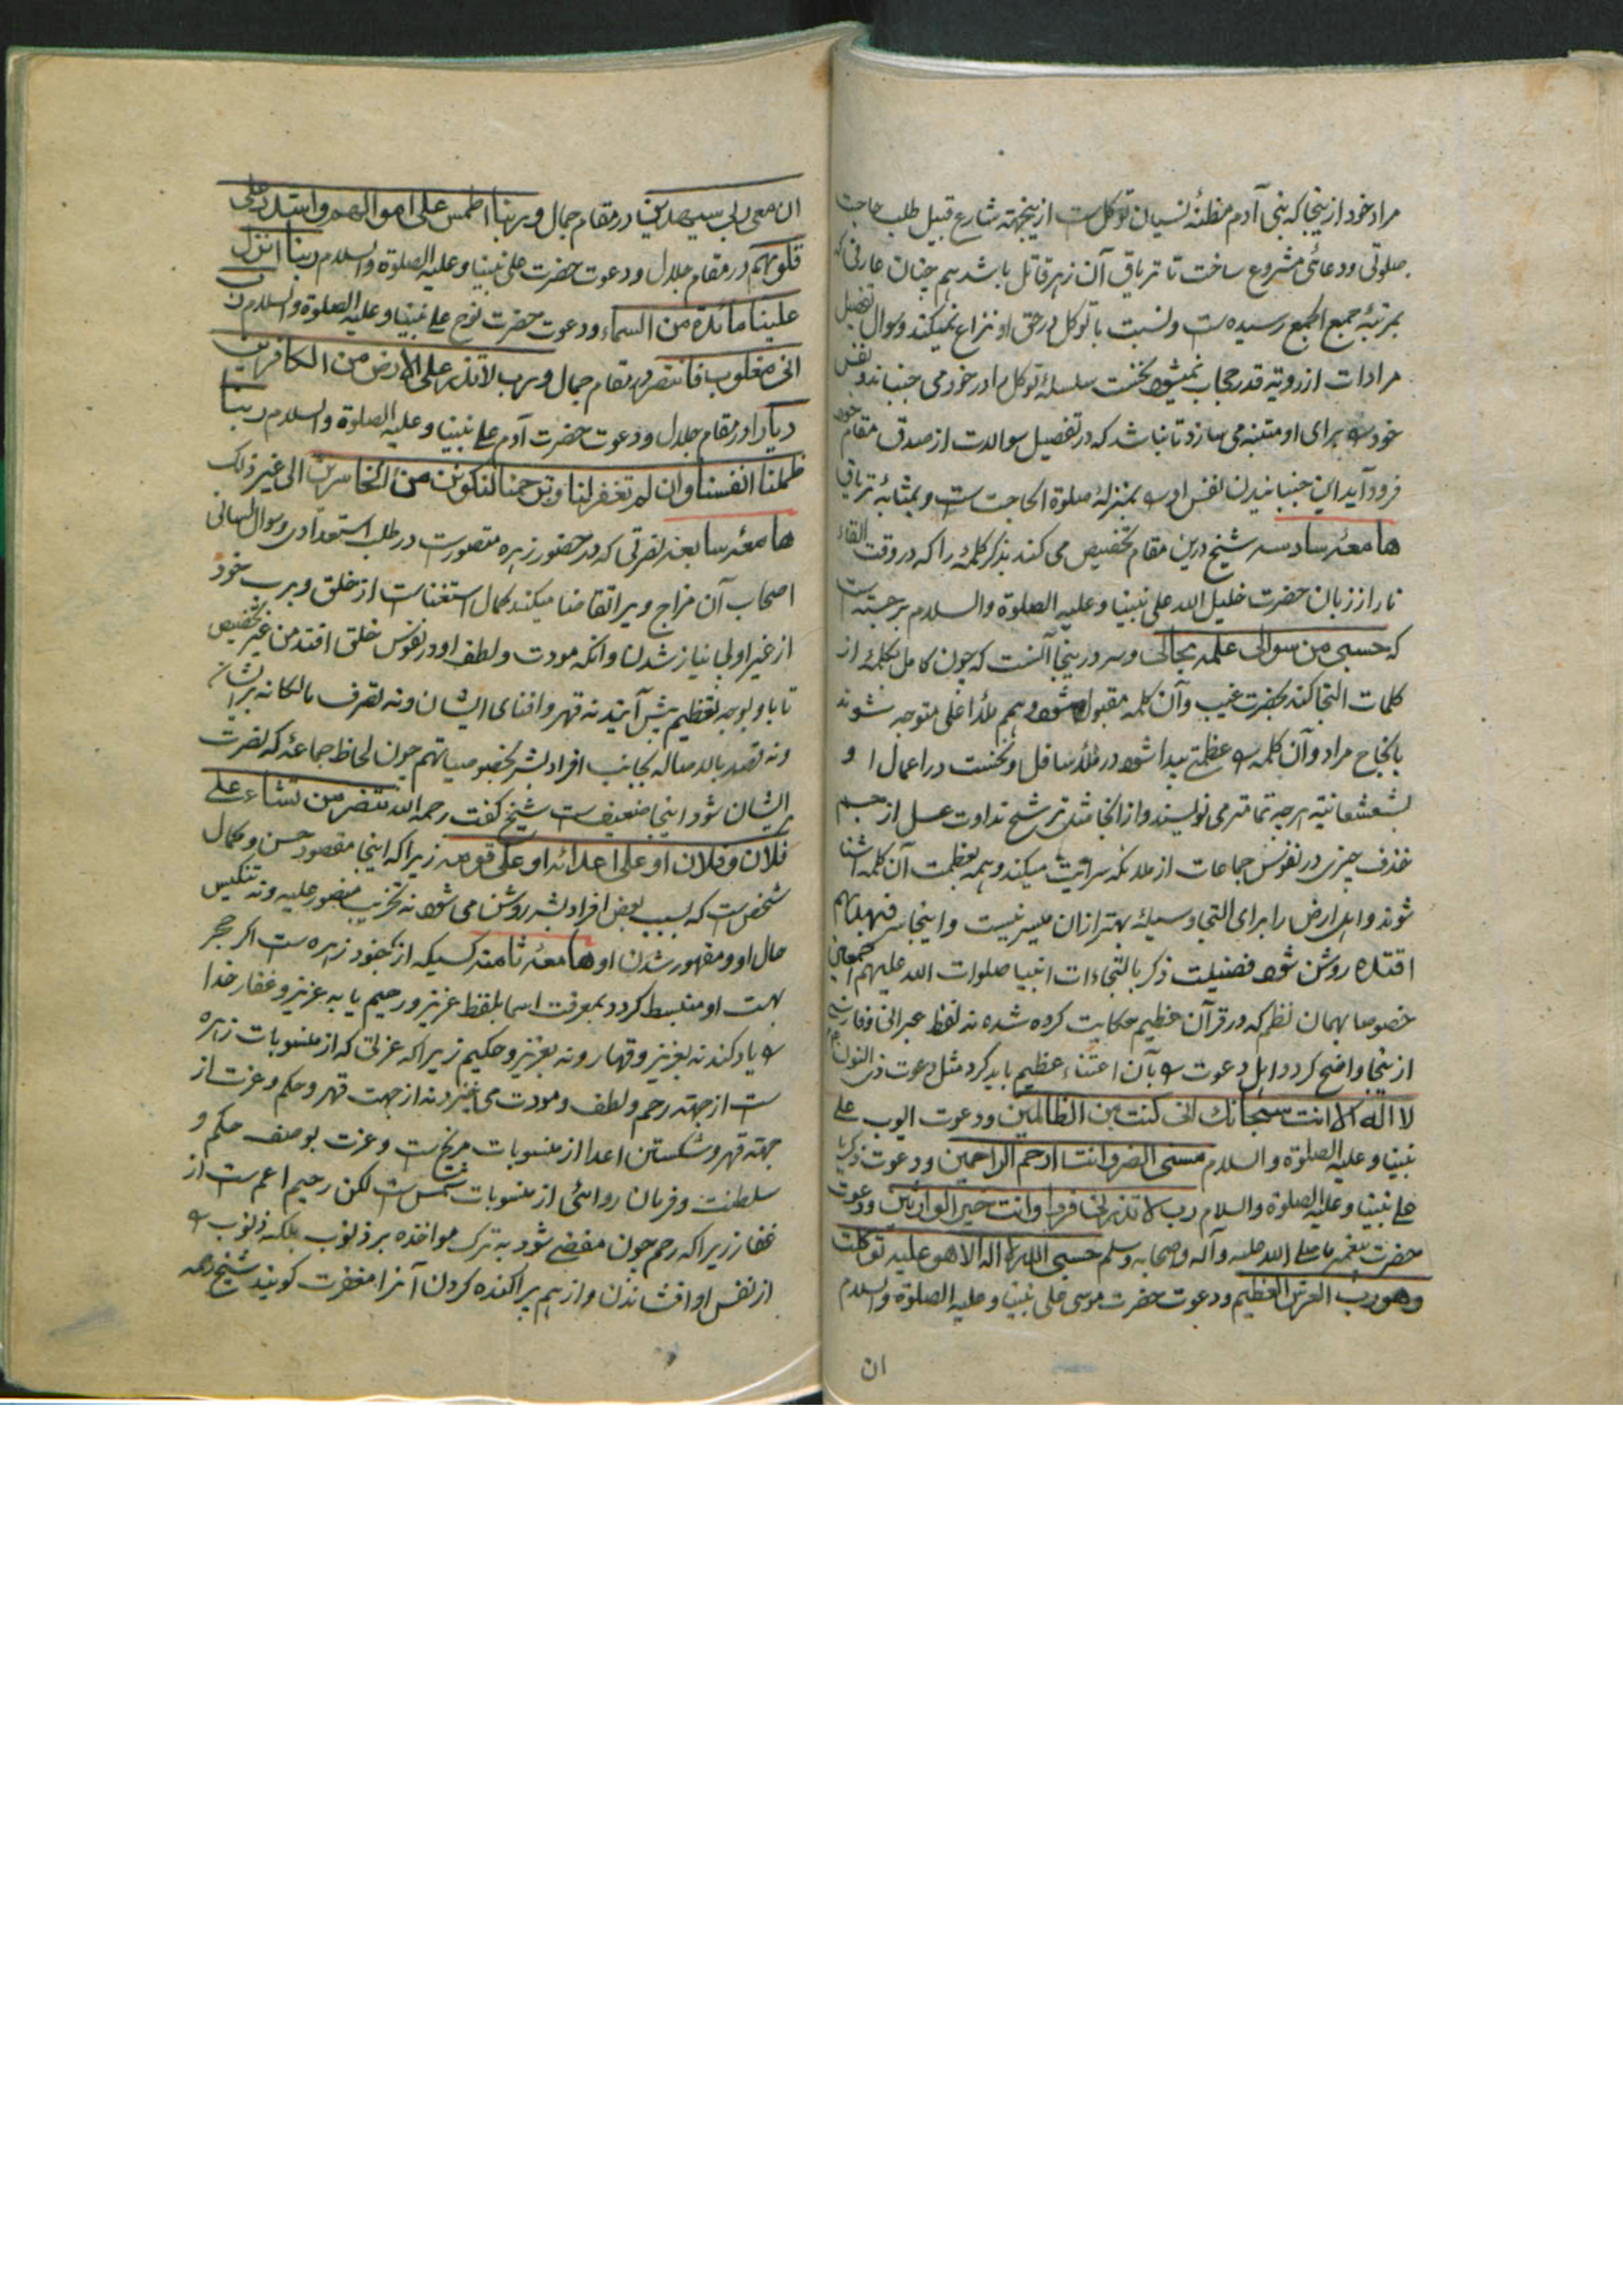 مراد خود از ینجا که بنی آدم مظنهٔ نسیان توکل ست ازینجهته شارع قبیل طلب حاجت
صلوتی ودعائی مشروع ساخت تا تریاق آن زهر قاتل باشد هم چنان عارفی که
بمرتبهٔ جمع الجمع رسیده ست ونسبت با توکل در حق او نزاع نمیکند وسوال تفصیل
مرادات از رویة قدر حجاب نمیشود نخست سلسلهٔ توکل را در خود می جنباند ونفس
خود را برای او متنبه می سازد تا نباشد که در تفصیل سوالات از صدق مقام خود
فرود آید این جنبانیدن نفس او را بمنزلهٔ صلوة الحاجت ست وبمثابهٔ تریاق
هامعهٔ سادسه شیخ درین مقام تخصیص می کند بذکر کلمهٔ را که در وقت القاء
نار از زبان حضرت خلیل الله علی نبینا وعلیه الصلوة والسلام برجسته است
که حسبی من سوالی علمه بحالی وسر درینجا آنست که چون کامل بکلمهٔ از
کلمات التجا کند بحضرت غیب وآن کلمه مقبول شود وهمم ملأ اعلی متوجه شوند
بانجاح مراد وآن کلمه را عظمتی پیدا شود در ملأ سافل ونخست در اعمال او
بشعشعانیته هرچه تمامتر می نویسند واز انجا مثل ترشح نداوت عسل از جسم
خذف چیزی در نفوس جماعات از ملائکه سرایت میکند وهمه بعظمت آن کلمه آشنا
شوند واهل ارض را برای التجا وسیلهٔ بهتر ازان میسر نیست واینجا سر فبهداهم
اقتده روشن شود فضیلت ذکر بالتجاءات انبیا صلوات الله علیهم اجمعین
خصوصا بهمان نظم که در قرآن عظیم حکایت کرده شده نه لفظ عبرانی وفارسی
ازینجا واضح کردد اهل دعوت را بآن اعتناء عظیم باید کرد مثل دعوت ذی النون
لا اله الا انت سبحانك انی کنت من الظالمین ودعوت ایوب علی
نبینا وعلیه الصلوة والسلام مسنی الضر وانت ارحم الراحمین ودعوت زکریا
علی نبینا وعلیه الصلوة والسلام رب لا تذرنی فردا وانت خیر الوارثین ودعوت
حضرت پیغمبر ما صلی الله علیه وآله وصحابه وسلم حسبی الله لا اله الا هو علیه توکلت
وهو رب العرش العظیم ودعوت حضرت موسی علی نبینا وعلیه الصلوة والسلام
ان
ان معی ربی سیهدین در مقام جمال وربنا اطمس علی اموالهم واشدد علی
قلوبهم در مقام جلال ودعوت حضرت علی نبینا وعلیه الصلوة والسلام ربنا انزل
علینا مائدة من السماء ودعوت حضرت نوح علی نبینا وعلیه الصلوة والسلام
انی مغلوب فانتصر در مقام جمال ورب لا تذر علی الارض من الکافرین
دیارا در مقام جلال ودعوت حضرت آدم علی نبینا وعلیه الصلوة والسلام ربنا
ظلمنا انفسنا وان لم تغفر لنا وترحمنا لنکونن من الخاسرین الی غیر ذلك
هامعهٔ سابعه نصرتی که در حضور زهره متصورست در طلب استعدادی وسوال لسانی
اصحاب آن مزاج ویرا تقاضا میکند کمال استغناست از خلق وبرب خود
از غیر اولی نیاز شدن وانکه مودت ولطف او در نفوس خلق افتد من غیر تخصیص
تا با او بوجه تعظیم پیش آیند نه قهر وافنای ایشان ونه تصرف مالکانه بر ایشان
ونه تصد بالاصاله بجانب افراد بشر بخصوصیاتهم چون لحاظ جماعهٔ که نصرت
ایشان شود اینجا ضعیف ست شیخ کفت رحمه الله تنصر من تشاء علی
فلان وفلان او علی اعدائه او علی قومه زیرا که اینجا مقصود حسن وکمال
شخص ست که بسبب بعض افراد بشر روشن می شود نه تخریب منصور علیه ونه تنکیس
حال او ومقهور شدن او هامعهٔ ثامنه کسیکه از جنود زهره ست اکر حجر
بهت او منبسط کردد بمعرفت اسما بلفظ عزیز ورحیم یا به عزیز وغفار خدا
را یاد کند نه بعزیز وقهار ونه بعزیز وحکیم زیرا که عزتی که از منسوبات زهره
ست از جهته رحم ولطف ومودت می خیزد نه از جهت قهر وحکم وعزت از
جهته قهر وشکستن اعدا از منسوبات مریخ ست وعزت بوصف حکم و
سلطنت وفرمان روائی از منسوبات شمس ست لکن رحیم اعم ست از
غفار زیرا که رحم چون مفضی شود به ترک مواخذه بر ذنوب بلکه ذنوب را
از نفس او افشاندن واز هم پراکنده کردن آنرا مغفرت کویند شیخ رحمه